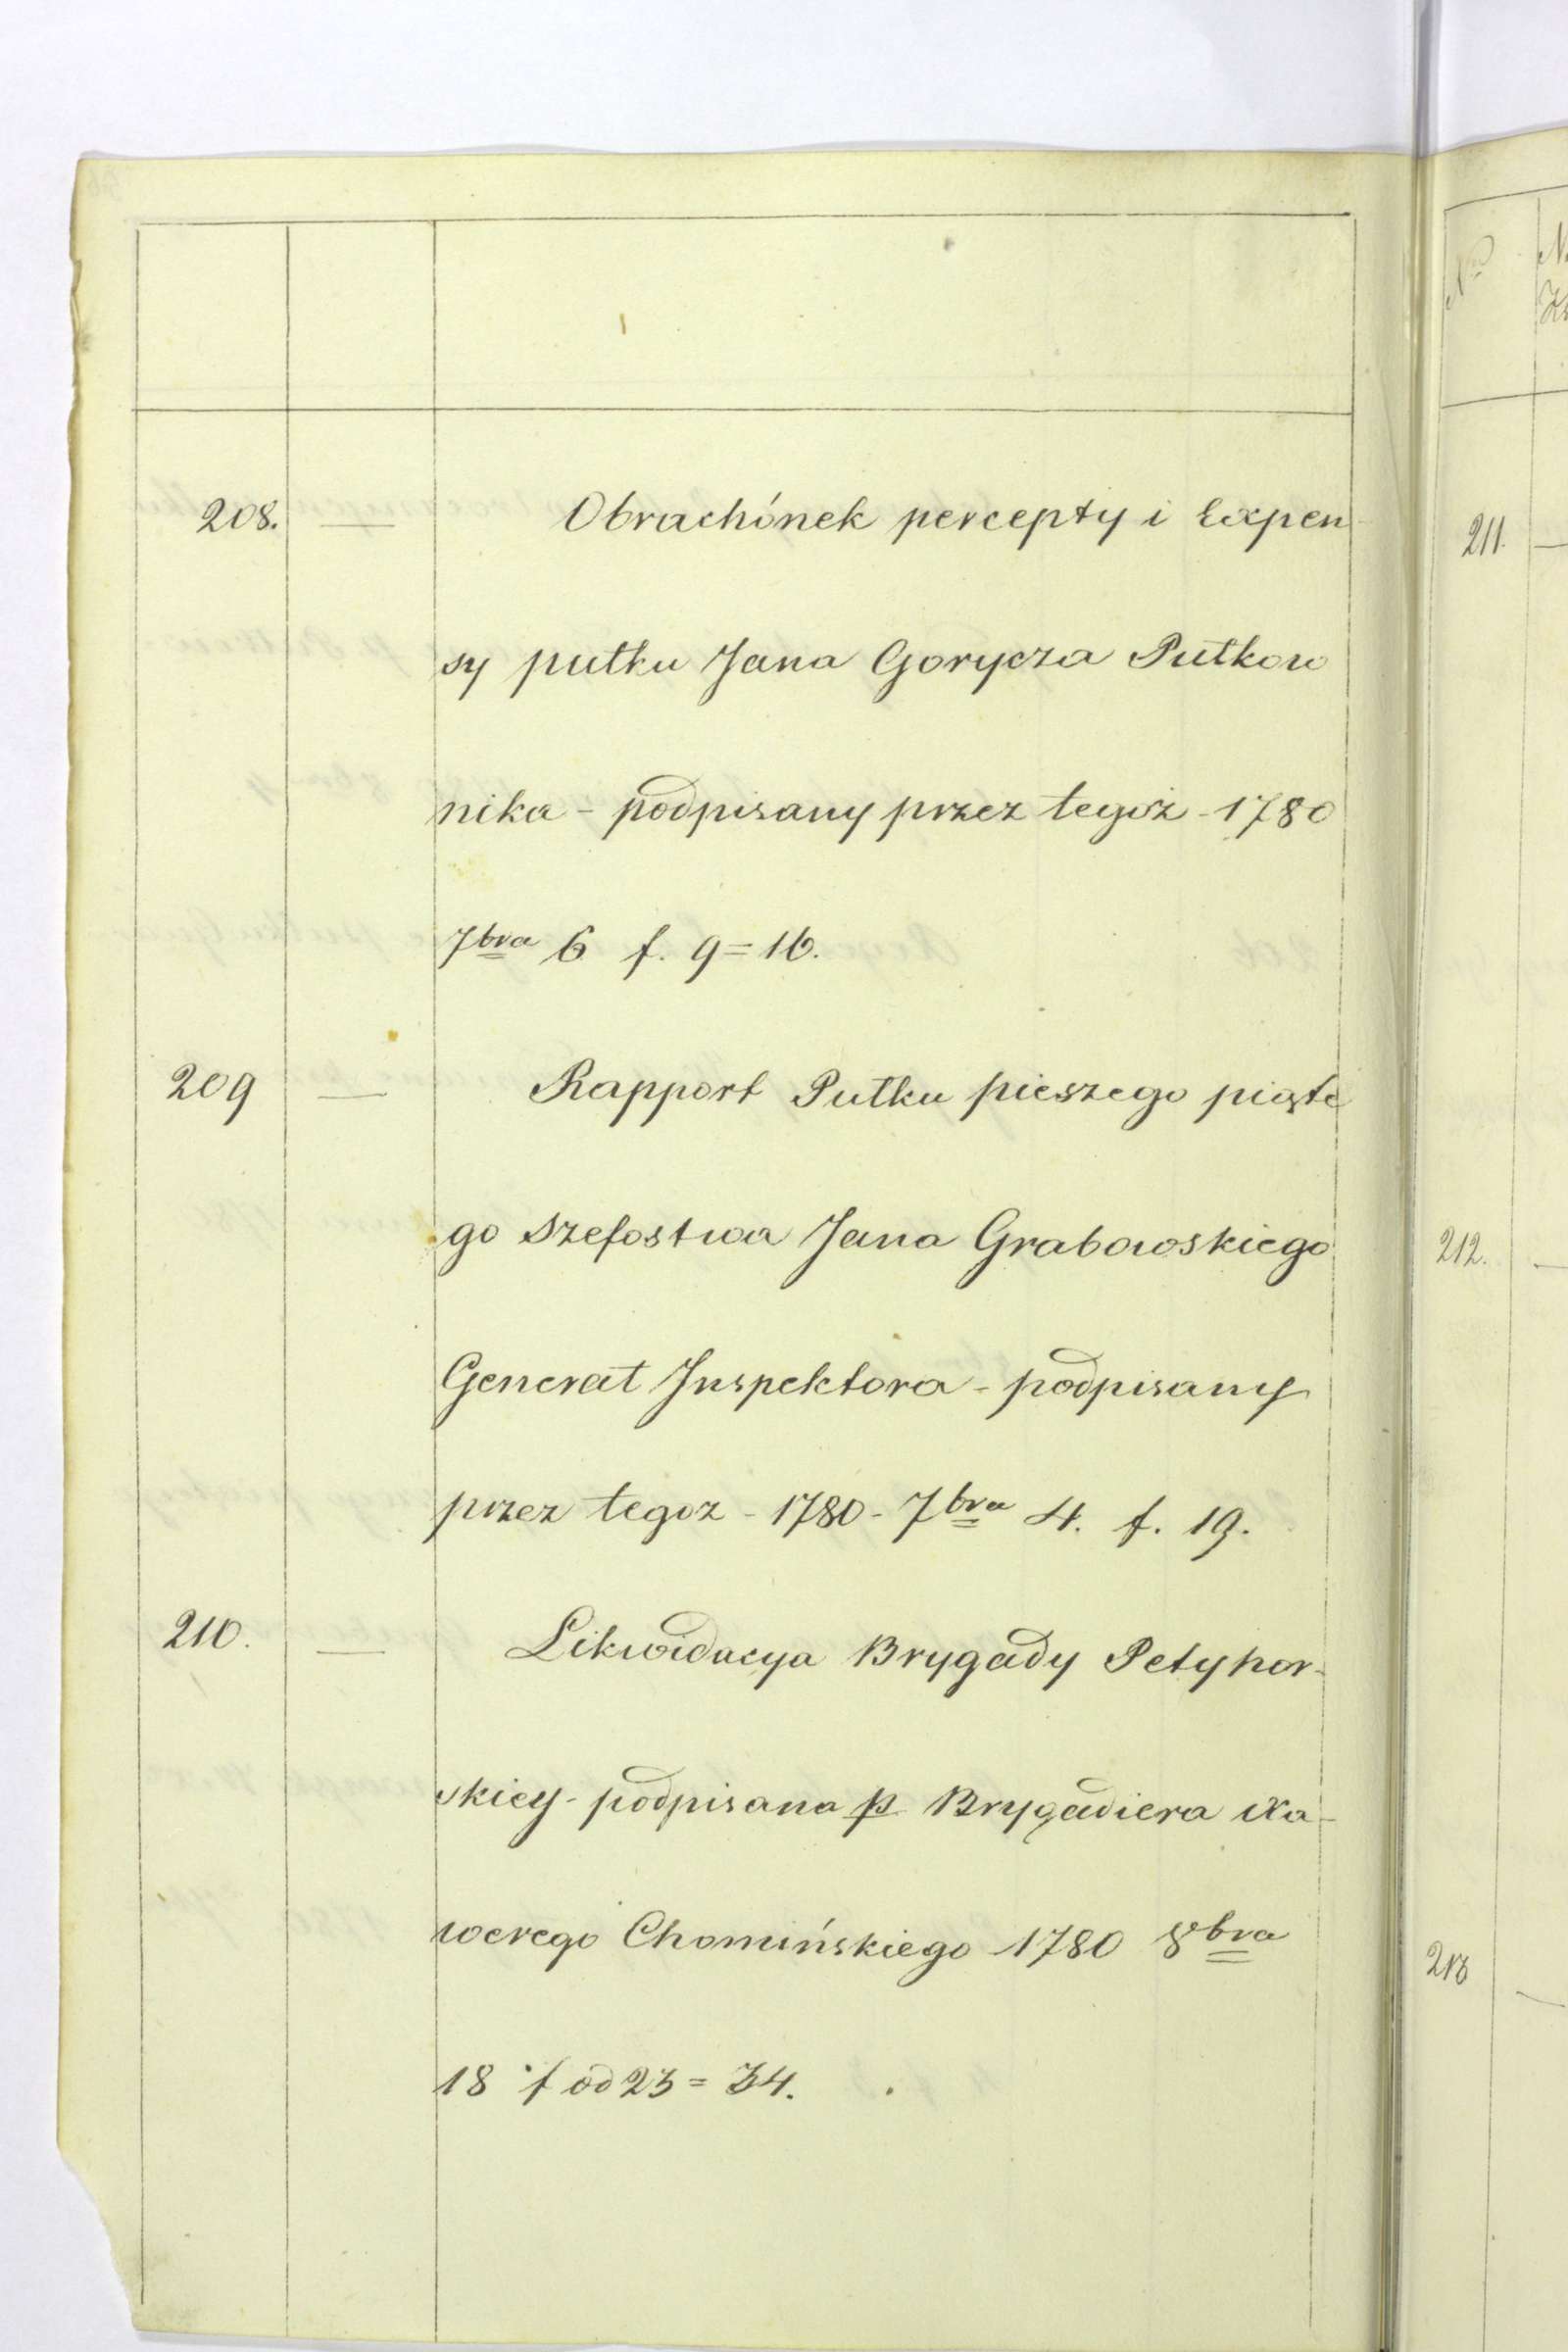 208. — Obrachónek percepty i Expen
sy pułku Jana Gorycza Pułkow
nika - podpisany przez tegoż - 1780
7bra 6 f. 9 = 16.
209 — Rapport Pułku pieszego piąte
go Szefostwa Jana Grabowskiego
Generał Inspektora - podpisany
przez tegoz - 1780 - 7bra 4. f. 19.
210. — Likwidacya Brygady Petyhor-
skiey - podpisana p Brygadiera Xa-
werego Chomińskiego 1780 8bra
18 f od 23 = 34.
211. —
212. —
213 —